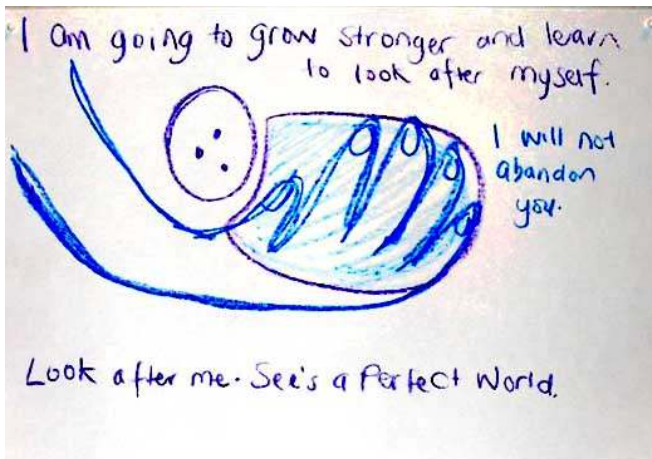 I am going to grow stronger and learn
to look after myself.
I will not
abandon
you.
Look after me. See's a Perfect World.